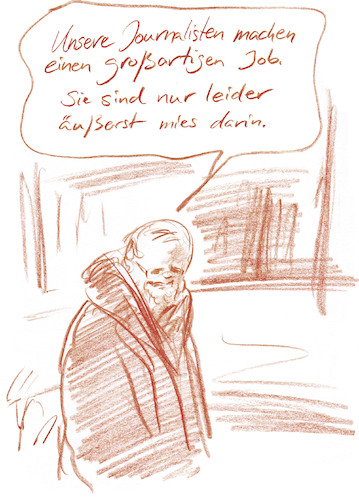 Unsere Journalisten machen
einen großartigen Job.
Sie sind nur leider
äußerst mies darin.